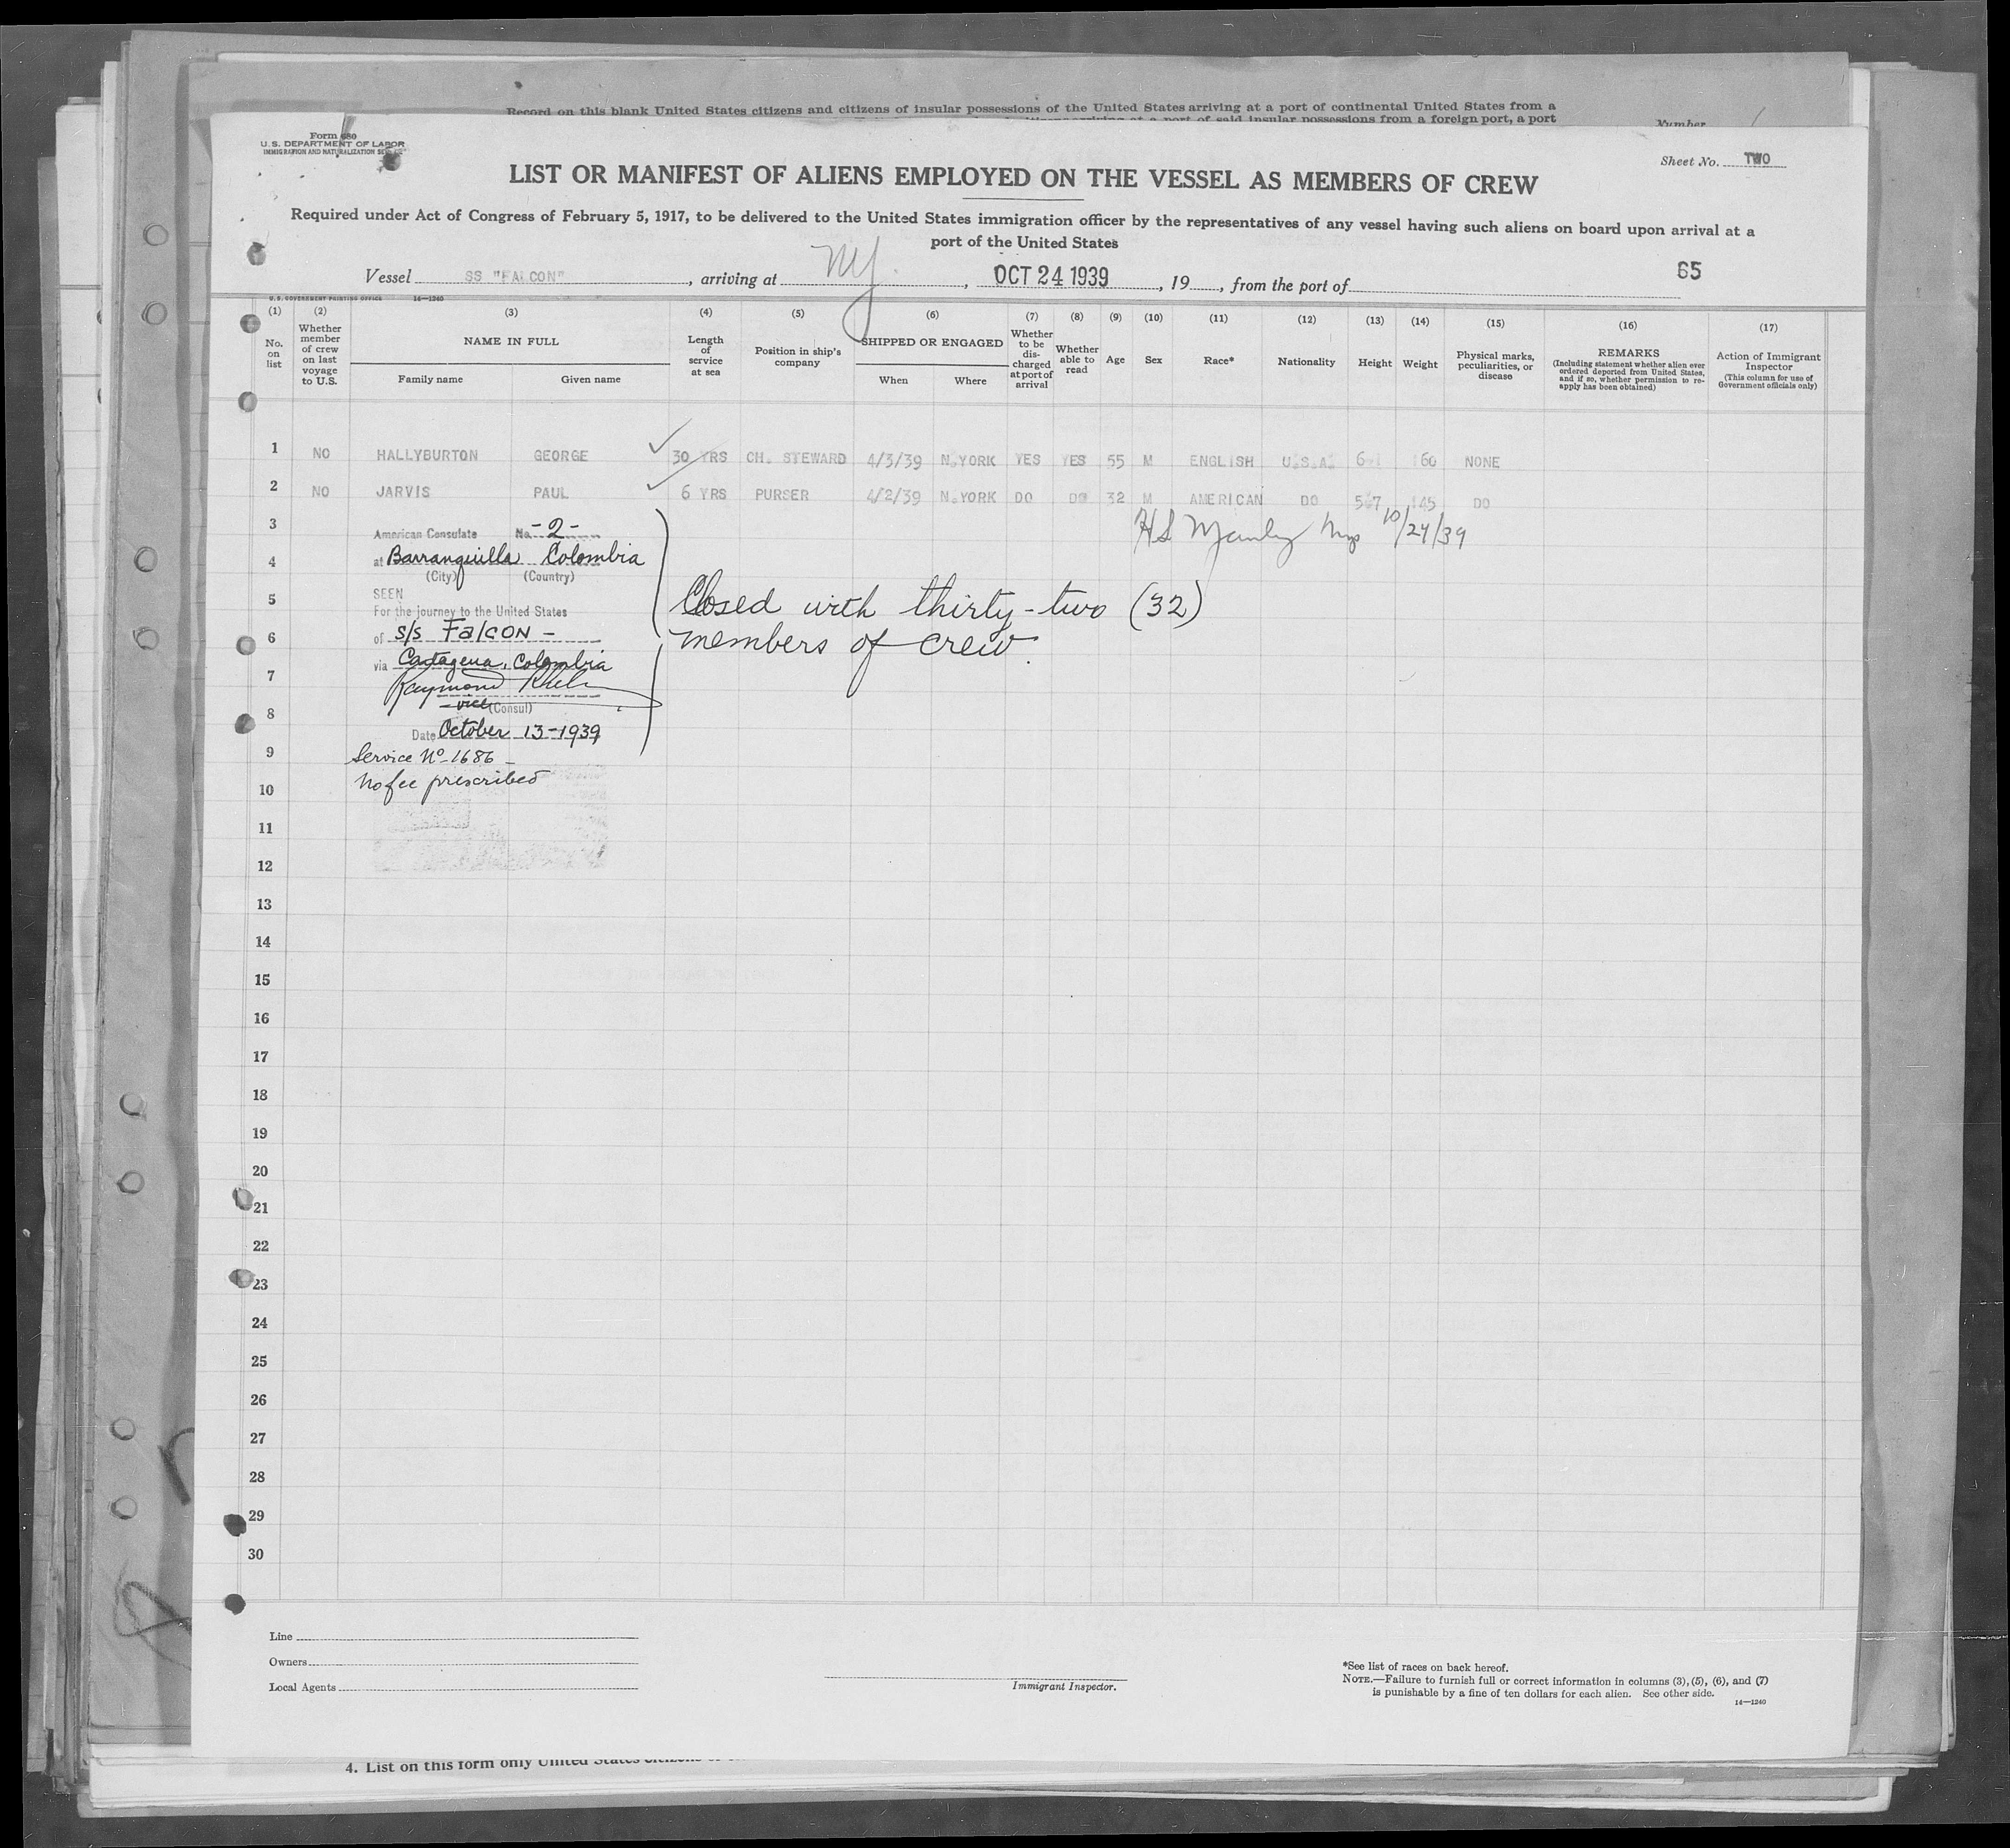 Record on this blank United States citizens and citizens of insular possessions of the United States arriving at a port of continental United States from a
at a port of said insular possessions from a foreign port, a port
Number
Form 680
U.S. DEPARTMENT OF LABOR
IMMIGRATION AND NATURALIZATION SERVICE
Sheet No. TWO
LIST OR MANIFEST OF ALIENS EMPLOYED ON THE VESSEL AS MEMBERS OF CREW
Required under Act of Congress of February 5, 1917, to be delivered to the United States immigration officer by the representatives of any vessel having such aliens on board upon arrival at a
port of the United States
65
Vessel SS "FALCON", arriving at NY, OCT 24 1939, 19, from the port of
U.S. GOVERNMENT PRINTING OFFICE 14—1240
(1) (2) (3) (4) (5) (6) (7) (8) (9) (10) (11) (12) (13) (14) (15) (16) (17)
No. on list
Whether member of crew on last voyage to U.S.
NAME IN FULL
Family name Given name
Length of service at sea
Position in ship's company
SHIPPED OR ENGAGED
When Where
Whether to be discharged at port of arrival
Whether able to read
Age
Sex
Race*
Nationality
Height
Weight
Physical marks, peculiarities, or disease
REMARKS
(Including statement whether alien ever ordered deported from United States, and if so, whether permission to re-apply has been obtained)
Action of Immigrant Inspector
(This column for use of Government officials only)
1 NO HALLYBURTON GEORGE 30 YRS CH. STEWARD 4/3/39 N.YORK YES YES 55 M ENGLISH U.S.A. 160 NONE
2 NO JARVIS PAUL 6 YRS PURSER 4/2/39 N.YORK DO DO 32 M AMERICAN DO 5 7 145 DO
3
American Consulate No. -2-
10/24/39
4
at Barranquilla Colombia
(City) (Country)
5
SEEN
For the journey to the United States
Closed with thirty-two (32)
6
of s/s Falcon -
members of crew.
7
via Cartagena, Colombia
Raymond
8
-vice (Consul)
Date October 13-1939
9
Service No-1686-
10
No fee prescribed
11
12
13
14
15
16
17
18
19
20
21
22
23
24
25
26
27
28
29
30
Line
Owners
Local Agents
Immigrant Inspector.
*See list of races on back hereof.
NOTE.—Failure to furnish full or correct information in columns (3), (5), (6), and (7)
is punishable by a fine of ten dollars for each alien. See other side.
14—1240
4. List on this form only United States